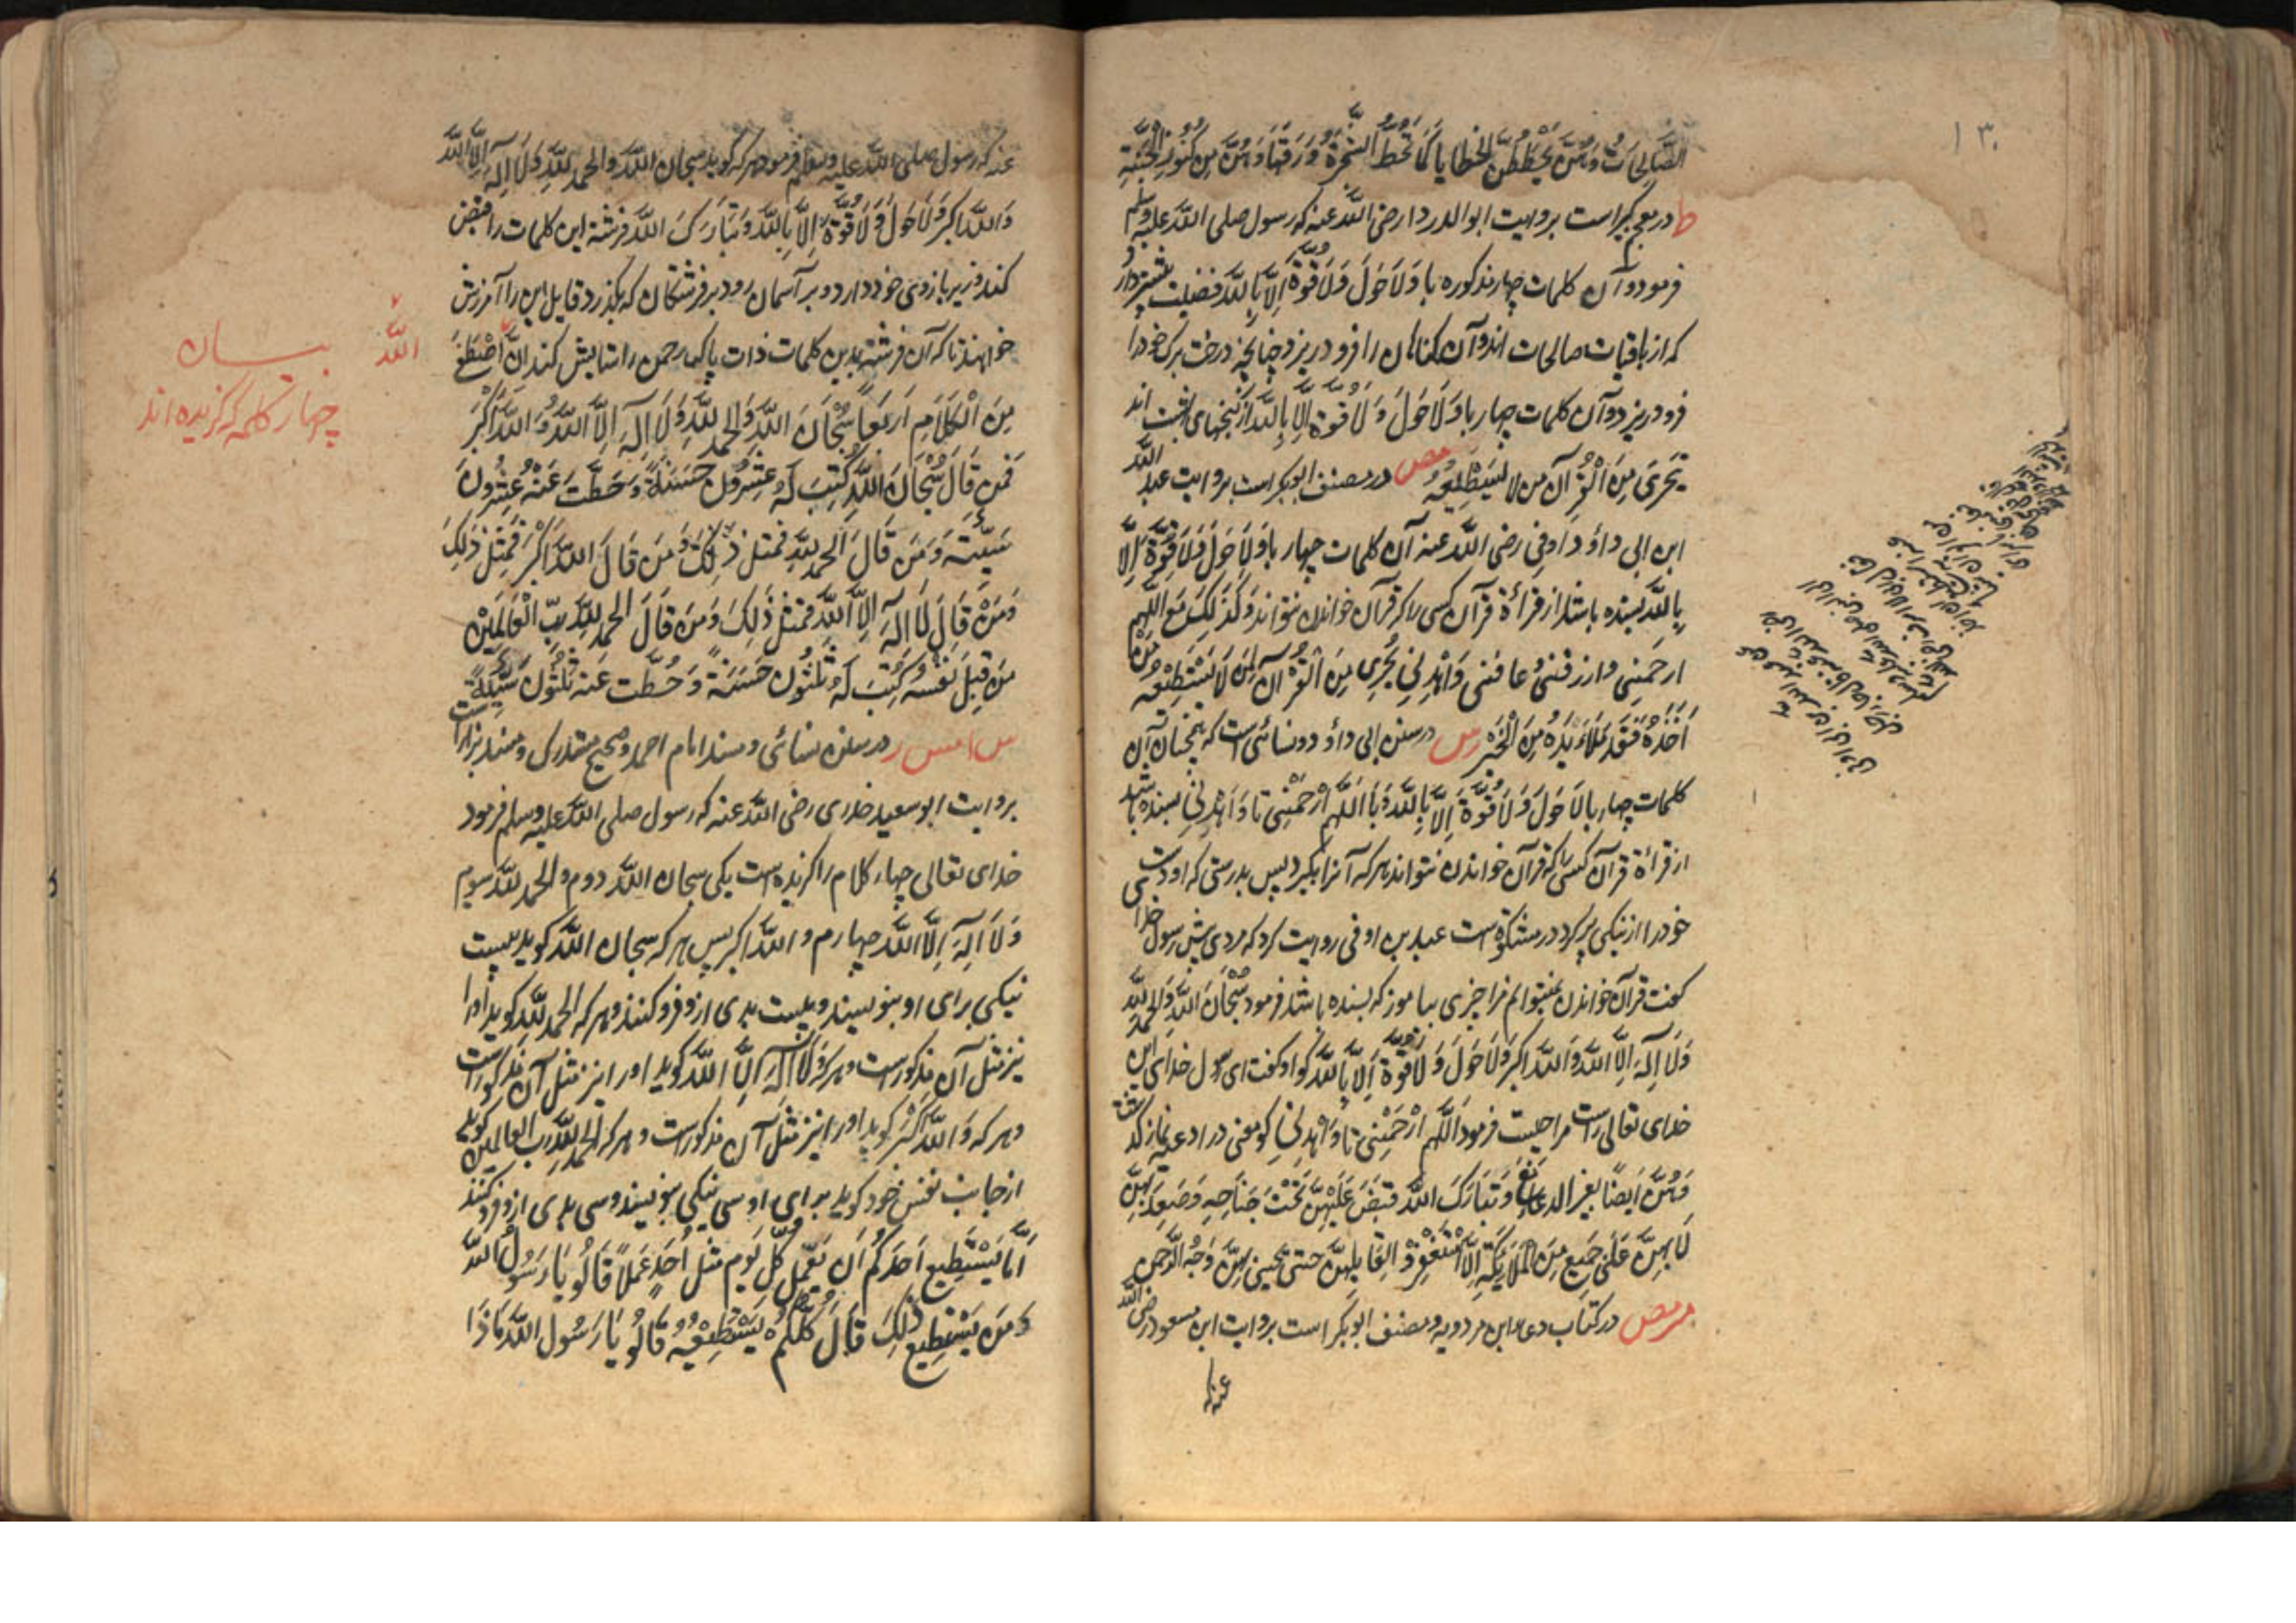 ١٣٠
الصَّالِحَاتُ وَهُنَّ يَحْطُطْنَ الْخَطَايَا كَمَا تَحُطُّ الشَّجَرَةُ وَرَقَهَا وَهُنَّ مِنْ كُنُوزِ الْجَنَّةِ
ط در معجم کبیر است بروایت ابوالدردا رضی اللّه عنه که رسول صلی اللّه علیه وسلم
فرمود و آن کلمات چهار مذکوره با وَلَا حَوْلَ وَلَا قُوَّةَ اِلَّا بِاللّهِ فضیلت بیشتر دارد
که از باقیات صالحات اند و آن گناهان را فرو دریزد چنانچه درخت برک خود را
فرو دریزد و آن کلمات چهار با وَلَا حَوْلَ وَلَا قُوَّةَ اِلَّا بِاللّهِ از گنجهای بهشت اند
يَجْزِى مِنَ الْقُرْآنِ مَن لَا يَسْتَطِيعُهُ مص در مصنف ابوبکر است بروایت عبد اللّه
ابن ابی داؤد اوفی رضی اللّه عنه آن کلمات چهار با وَلَا حَوْلَ وَلَا قُوَّةَ اِلَّا
بِاللّهِ بسنده باشد از قراءة قرآن کسی را که قرآن خواندن نتواند وَكَذَلِكَ مَعَ اللّهُمَّ
ارحَمْنِى وارزقنى وعافنى وَاهْدِنِى يَجْزِى مِنَ الْقُرْآنِ لِمَنْ لَا يَسْتَطِيعُهُ وَمَنْ
اَخَذَهُ فَقَدْ مَلَاءَ يَدَهُ مِنَ الْخَيْرِ دس در سنن ابی داؤد و نسائی است که همچنان آن
کلمات چهار با لَا حَوْلَ وَلَا قُوَّةَ اِلَّا بِاللّهِ وَ با اَللّهُمَّ ارْحَمْنِى تا وَاهْدِنِى بسنده باشد
از قراءة قرآن کسی را که قرآن خواندن نتواند هر که آنرا بگیرد پس بدرستی که او دست
خود را از نیکی پر کرد در مشکوة است عبد بن اوفی روایت کرد که مردی پیش رسول خدا
گفت قرآن خواندن نمیتوانم مرا چیزی بیاموز که بسنده باشد فرمود سُبْحَانَ اللّهِ وَالحمدُ للّهِ
وَلَا اِلٰهَ اِلَّا اللّهُ وَاللّهُ اکبر وَلَا حَوْلَ وَلَا قُوَّةَ اِلَّا بِاللّهِ گو او گفت ای رسول خدای این
خدای تعالی راست مرا چیست فرمود اَللّهُمَّ ارْحَمْنِى تا وَاهْدِنِى گو معنی در ادعیه نماز گذشت
وَهُنَّ اَيْضًا بغير الدعاء وَتَبَارَكَ اللّهُ قَبَضَ عَلَيْهِنَّ تَحْتَ جَنَاحِهِ وَصَعِدَ بِهِنَّ
لَا بِهِنَّ عَلٰى جَمِيعٍ مِنَ الْمَلَائِكَةِ اِلَّا اسْتَغْفِرُوا لِقَائِلِهِنَّ حتى يحيى بِهِنَّ وَجْهَ الرَّحْمٰنِ
مر مص در کتاب دعاء ابن مردویه و مصنف ابوبکر است بروایت ابن مسعود رضی اللّه
عنه که
عنه که رسول صلی اللّه علیه وسلم فرمود هر که گوید سبحان اللّهِ والحمد للّهِ وَلَا اِلٰهَ اِلَّا اللّهُ
وَاللّهُ اکبر وَلَا حَوْلَ وَلَا قُوَّةَ اِلَّا بِاللّهِ وَتَبَارَكَ اللّهُ فرشته این کلمات را قبض
کند و زیر بازوی خود دارد و بر آسمان رود بر فرشتگان که بگذرد قایل این را آمرزش
خواهند تا که آن فرشته بدین کلمات ذات پاک رحمن را ستایش کند اِنَّ اللّه اصْطَفٰى
مِنَ الْكَلَامِ اَرْبَعًا سُبْحَانَ اللّهِ وَالحمد للّهِ وَلَا اِلٰهَ اِلَّا اللّهُ وَاللّهُ اَكْبَرُ
فَمَن قَالَ سُبْحَانَ اللّهِ كُتِبَ لَهُ عِشْرُونَ حَسَنَةً وَحُطَّتْ عَنْهُ عِشْرُونَ
سَيِّئَة وَمَن قَالَ الحمد للّهِ فَمِثل ذٰلِكَ وَمَن قَالَ اللّهُ اَكْبَرُ فَمِثل ذٰلِكَ
وَمَنْ قَالَ لَا اِلٰهَ اِلَّا اللّهُ فَمِثل ذٰلِكَ وَمَن قَالَ الحمد للّهِ رَبِّ الْعَالَمِيْنَ
مِن قِبَلِ نَفْسِهِ كُتِبَ لَهُ ثَلٰثُونَ حَسَنَةً وَحُطَّت عَنه ثَلٰثُونَ سَيِّئَةً
س ا مس ر در سنن نسائی و مسند امام احمد و صحیح مستدرک و مسند بزار است
بروایت ابو سعید خدری رضی اللّه عنه که رسول صلی اللّه علیه وسلم فرمود
خدای تعالی چهار کلام را گزیده است یکی سبحان اللّه دوم والحمد للّه سیوم
وَلَا اِلٰهَ اِلَّا اللّه چهارم و اللّه اکبر پس هر که سبحان اللّه گوید بیست
نیکی برای او بنویسند و بیست بدی ازو فرو کنند و هر که الحمد للّهِ گوید او را
نیز مثل آن مذکور است و هر که وَلَا اِلٰهَ اِلَّا اللّه گوید او را نیز مثل آن مذکور است
و هر که وَاللّهُ اَكْبَرُ گوید او را نیز مثل آن مذکور است و هر که الحمد للّهِ رب العالمین گوید
از جانب نفس خود گوید برای او سی نیکی بنویسند و سی بدی ازو فرو کنند
اَمَا يَسْتَطِيعُ اَحَدُكُمْ اَن يَعْمَلَ كُلَّ يَوْمٍ مِثل اُحُدٍ عَمَلًا قَالُوا يَا رَسُولَ اللّهِ
وَمَن يَسْتَطِيعُ ذٰلِكَ قَالَ كُلُّكُمْ يَسْتَطِيعُهُ قَالُوا يَا رَسُولَ اللّهِ مَاذَا
اللّه
بیان
چهار کلمه که گزیده اند